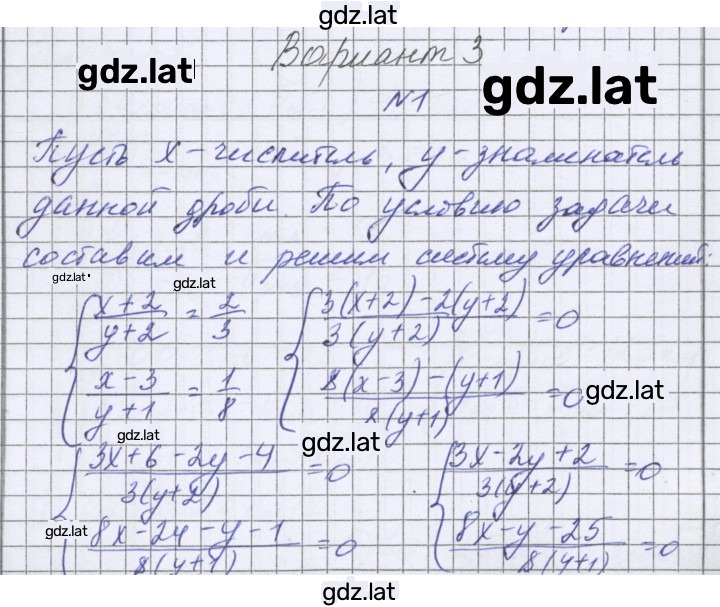 gdz.lat
Вариант 3
gdz.lat
gdz.lat
№1
Пусть x - числитель, y - знаменатель
данной дроби. По условию задачи
составим и решим систему уравнений:
gdz.lat
gdz.lat
{ (x+2)/(y+2) = 2/3 { (3(x+2)-2(y+2))/(3(y+2)) = 0
{ (x-3)/(y+1) = 1/8 { (8(x-3)-(y+1))/(8(y+1)) = 0
gdz.lat
gdz.lat
gdz.lat
{ (3x+6-2y-4)/(3(y+2)) = 0 { (3x-2y+2)/(3(y+2)) = 0
{ (8x-24-y-1)/(8(y+1)) = 0 { (8x-y-25)/(8(y+1)) = 0
gdz.lat
gdz.lat
gdz.lat